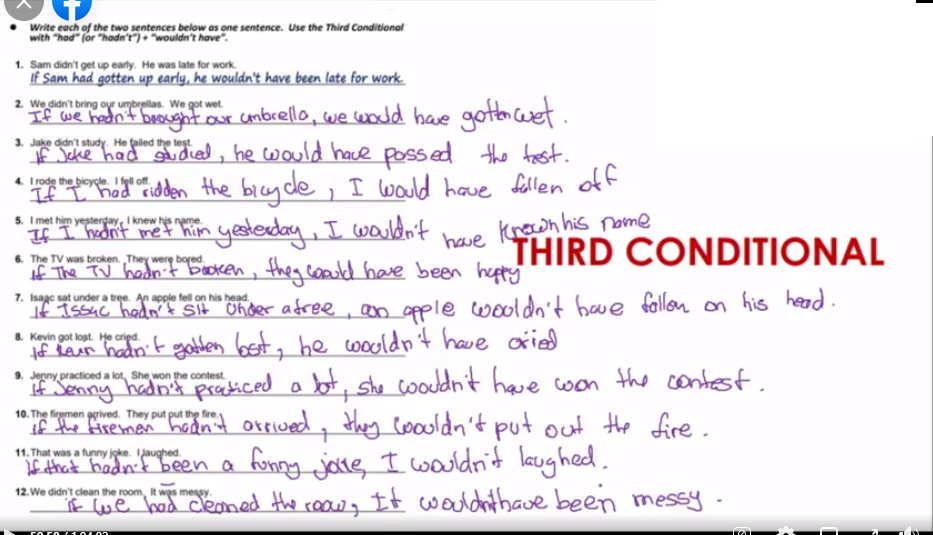 • Write each of the two sentences below as one sentence. Use the Third Conditional
with "had" (or "hadn't") + "wouldn't have".
1. Sam didn't get up early. He was late for work.
If Sam had gotten up early, he wouldn't have been late for work.
2. We didn't bring our umbrellas. We got wet.
If we hadn't brought our umbrella, we would have gotten wet.
3. Jake didn't study. He failed the test.
If Jake had studied, he would have passed the test.
4. I rode the bicycle. I fell off.
If I had ridden the bicycle, I would have fallen off
5. I met him yesterday. I knew his name.
If I hadn't met him yesterday, I wouldn't have known his name
THIRD CONDITIONAL
6. The TV was broken. They were bored.
If The TV hadn't broken, they would have been happy
7. Isaac sat under a tree. An apple fell on his head.
If Issac hadn't sit under a tree, an apple wouldn't have fallen on his head.
8. Kevin got lost. He cried.
If hadn't gotten lost, he wouldn't have cried
9. Jenny practiced a lot. She won the contest.
If Jenny hadn't practiced a lot, she wouldn't have won the contest.
10. The firemen arrived. They put put the fire.
if the firemen hadn't arrived, they wouldn't put out the fire.
11. That was a funny joke. I laughed.
If that hadn't been a funny joke, I wouldn't laughed.
12. We didn't clean the room. It was messy.
if we had cleaned the room, It wouldn't have been messy.